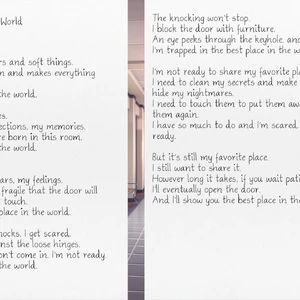 World
rs and soft things.
n and makes everything
the world.
es.
ections, my memories.
re born in this room.
the world.
ars, my feelings.
fragile that the door will
touch.
place in the world.
nocks, I get scared.
nst the loose hinges.
on't come in. I'm not ready.
the world.
The knocking won't stop.
I block the door with furniture.
An eye peeks through the keyhole, and
I'm trapped in the best place in the wo
I'm not ready to share my favorite pla
I need to clean my secrets and make
hide my nightmares.
I need to touch them to put them awa
them again.
I have so much to do and I'm scared.
ready.
But it's still my favorite place.
I still want to share it.
However long it takes, if you wait patie
I'll eventually open the door.
And I'll show you the best place in the